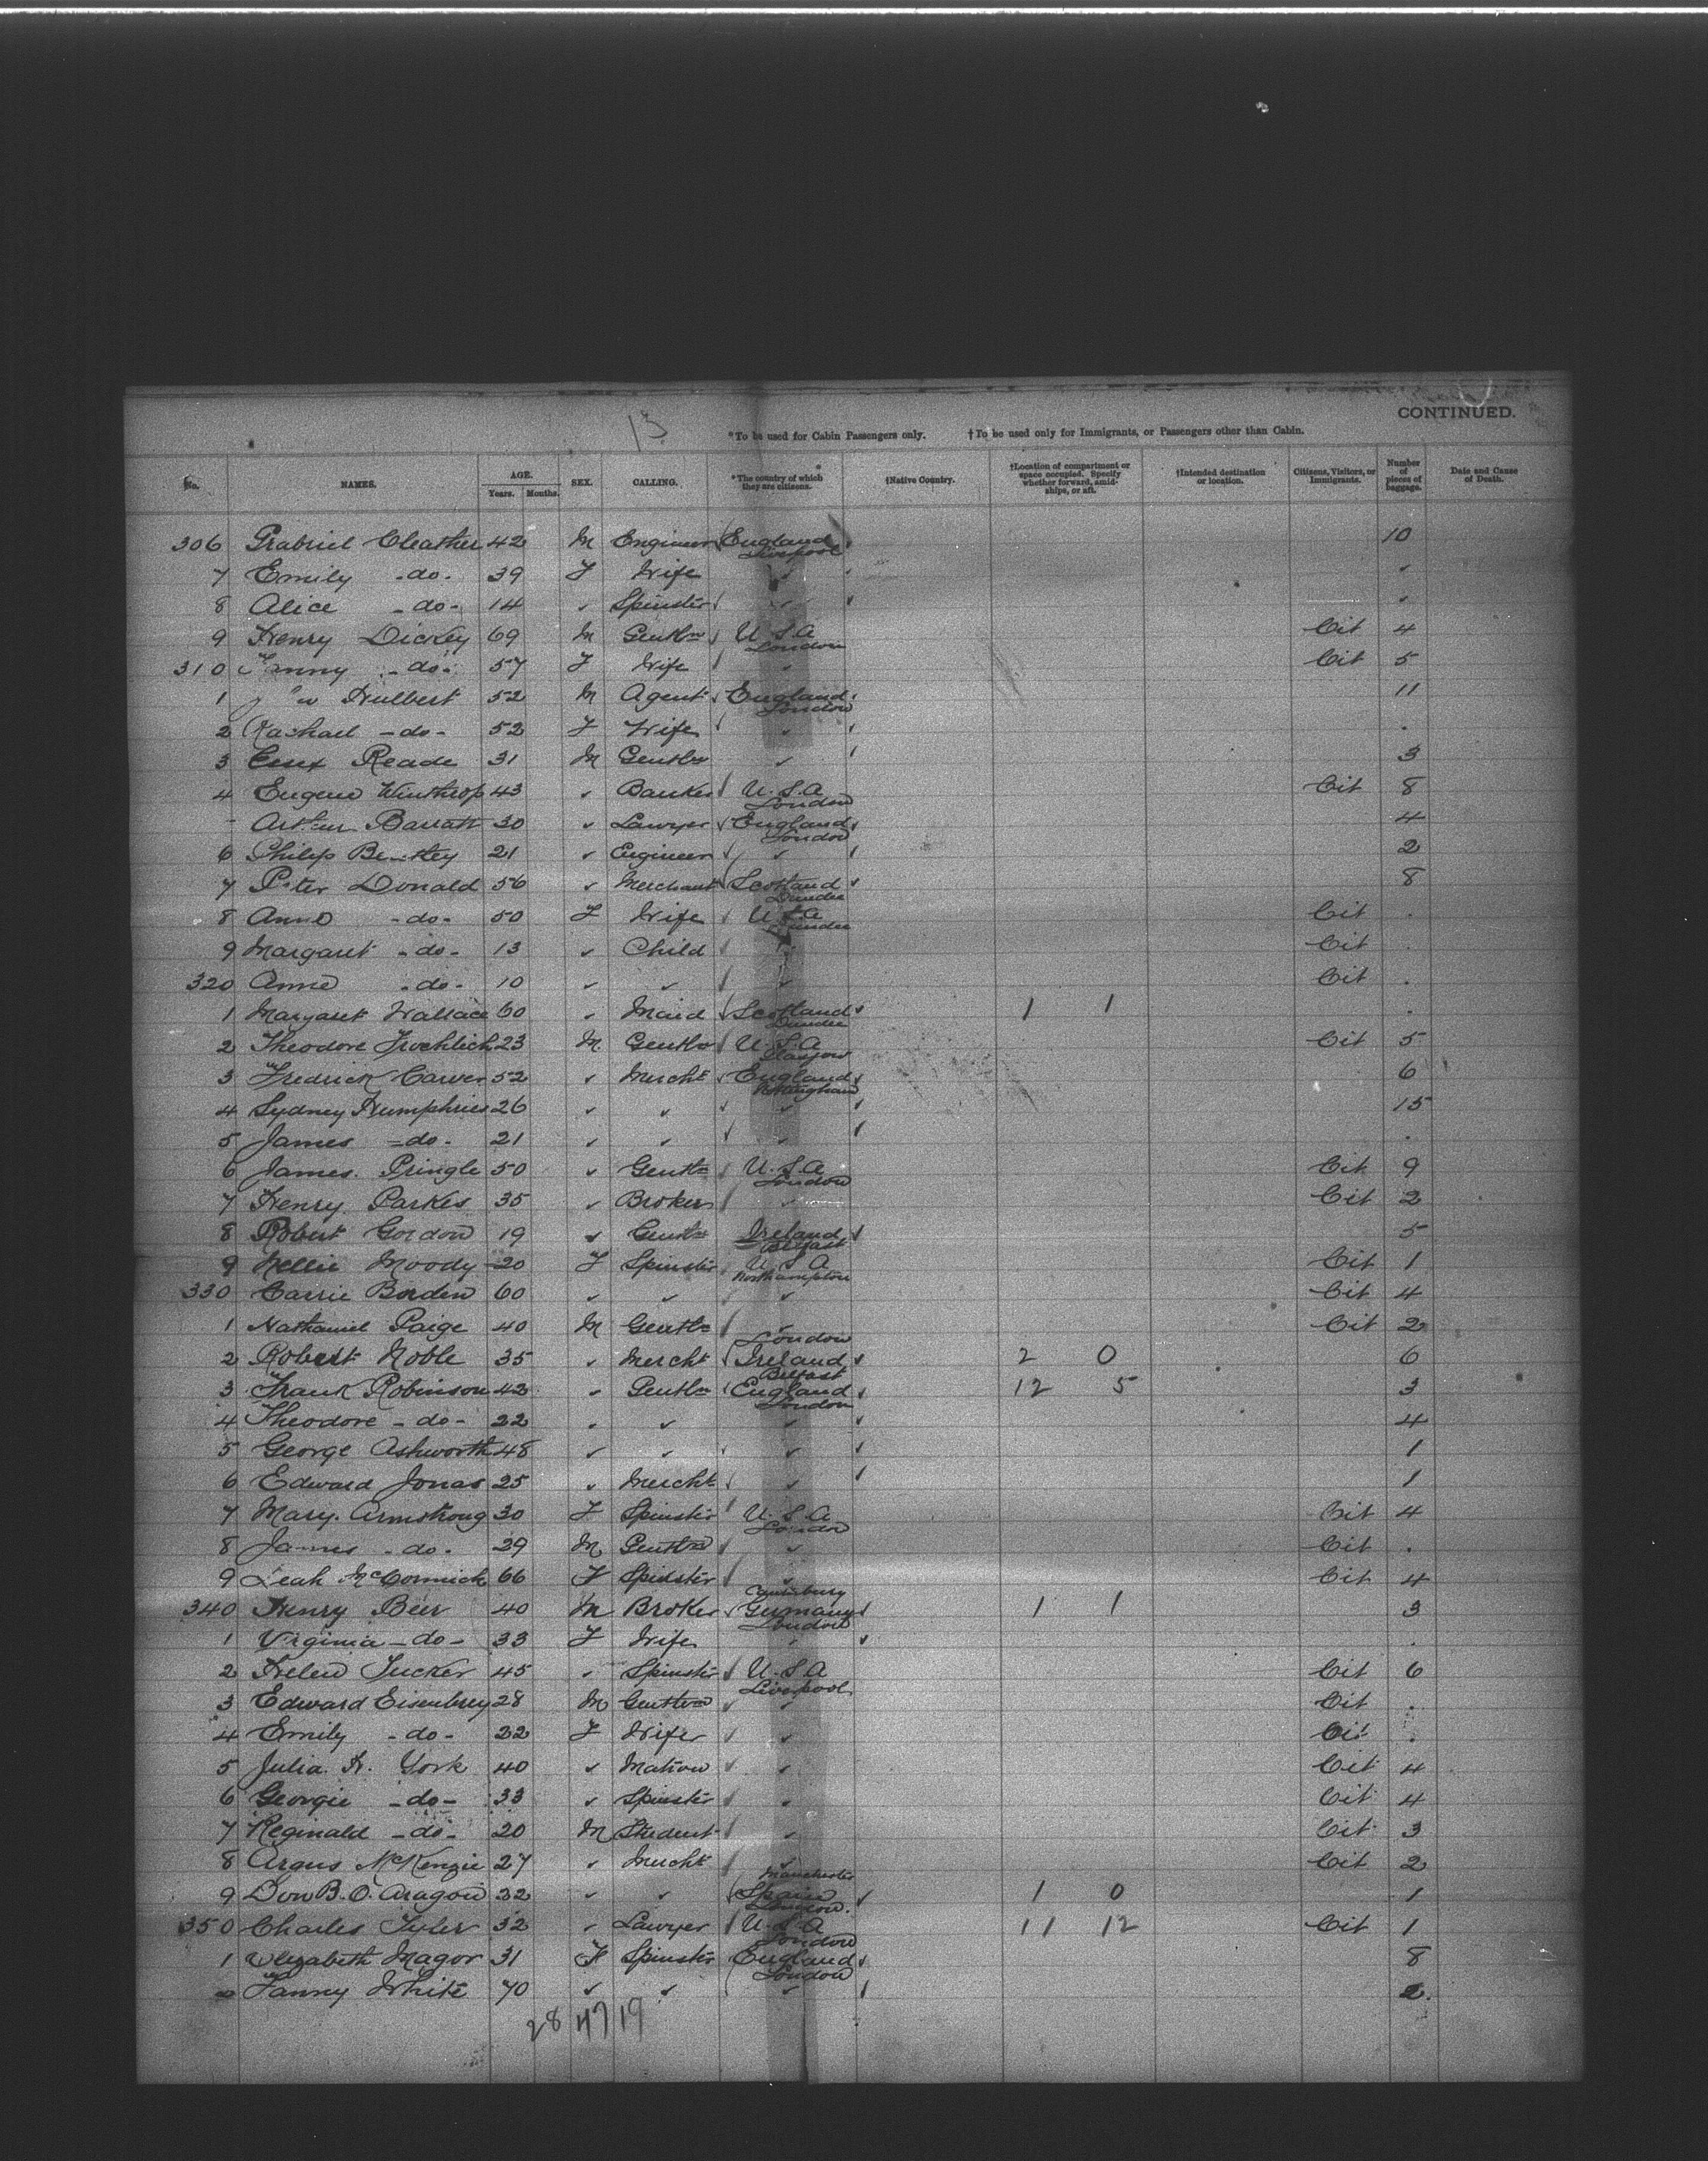 13
CONTINUED.
*To be used for Cabin Passengers only. †To be used only for Immigrants, or Passengers other than Cabin.
No. NAMES. AGE. Years. Months. SEX. CALLING. *The country of which they are citizens. †Native Country. †Location of compartment or space occupied. Specify whether forward, amidships, or aft. †Intended destination or location. Citizens, Visitors, or Immigrants. Number of pieces of baggage. Date and Cause of Death.
306 Grabriel Cleather 42 M Engineer England Liverpool 10
7 Emily -do- 39 F Wife ✓
8 Alice -do- 14 ✓ Spinster ✓
9 Henry Dickey 69 M Gentln U.S.A London Cit 4
310 Fanny -do- 57 F Wife ✓ Cit 5
1 Hulbert 52 M Agent England London 11
2 Rachael -do- 52 F Wife ✓
3 Essex Reade 31 M Gentln ✓ 3
4 Eugene Winthrop 43 ✓ Banker U.S.A London Cit 8
Arthur Barratt 30 ✓ Lawyer England London 4
6 Philip 21 ✓ Engineer ✓ 2
7 Peter Donald 56 ✓ Merchant Scotland Dundee 8
8 Anne -do- 50 F Wife U.S.A Dundee Cit
9 Margaret -do- 13 ✓ Child ✓ Cit
320 Anne -do- 10 ✓ ✓ ✓ Cit
1 Margaret Wallace 60 ✓ Maid Scotland Dundee 1 1
2 Theodore Froehlich 23 M Gentln U.S.A Glasgow Cit 5
3 Fredrick Carver 52 ✓ Mercht England Nottingham 6
4 Sydney Humphries 26 ✓ ✓ ✓ 15
5 James -do- 21 ✓ ✓ ✓
6 James Pringle 50 ✓ Gentln U.S.A London Cit 9
7 Henry Parkes 35 ✓ Broker ✓ Cit 2
8 Robert Gordon 19 ✓ Gentln Ireland Belfast 5
9 Nellie Moody 20 F Spinster U.S.A Northampton Cit 1
330 Carrie Borden 60 ✓ ✓ ✓ Cit 4
1 Nathaniel Paige 40 M Gentln ✓ London Cit 2
2 Robert Noble 35 ✓ Mercht Ireland Belfast 2 0 6
3 Frank Robinson 42 ✓ Gentln England London 12 5 3
4 Theodore -do- 22 ✓ ✓ ✓ 4
5 George Ashworth 48 ✓ ✓ ✓ 1
6 Edward Jonas 25 ✓ Mercht ✓ 1
7 Mary Armstrong 30 F Spinster U.S.A London Cit 4
8 James -do- 29 M Gentln ✓ Cit
9 Leah McCormick 66 F Spinster ✓ Canterbury Cit 4
340 Henry Beer 40 M Broker Germany London 1 1 3
1 Virginia -do- 33 F Wife ✓
2 Helen Tucker 45 ✓ Spinster U.S.A Liverpool Cit 6
3 Edward Eisenbrey 28 M Gentln ✓ Cit
4 Emily -do- 22 F Wife ✓ Cit
5 Julia H. York 40 ✓ Matron ✓ Cit 4
6 Georgie -do- 33 ✓ Spinster ✓ Cit 4
7 Reginald -do- 20 M Student ✓ Cit 3
8 Argus McKenzie 27 ✓ Mercht ✓ Manchester Cit 2
9 Don B. O. Aragon 32 ✓ ✓ Spain London. 1 0 1
350 Charles Tyler 32 ✓ Lawyer U.S.A London 11 12 Cit 1
1 Elizabeth Magor 31 F Spinster England London 8
2 Fanny White 70 ✓ ✓ ✓ 2.
28 47 19